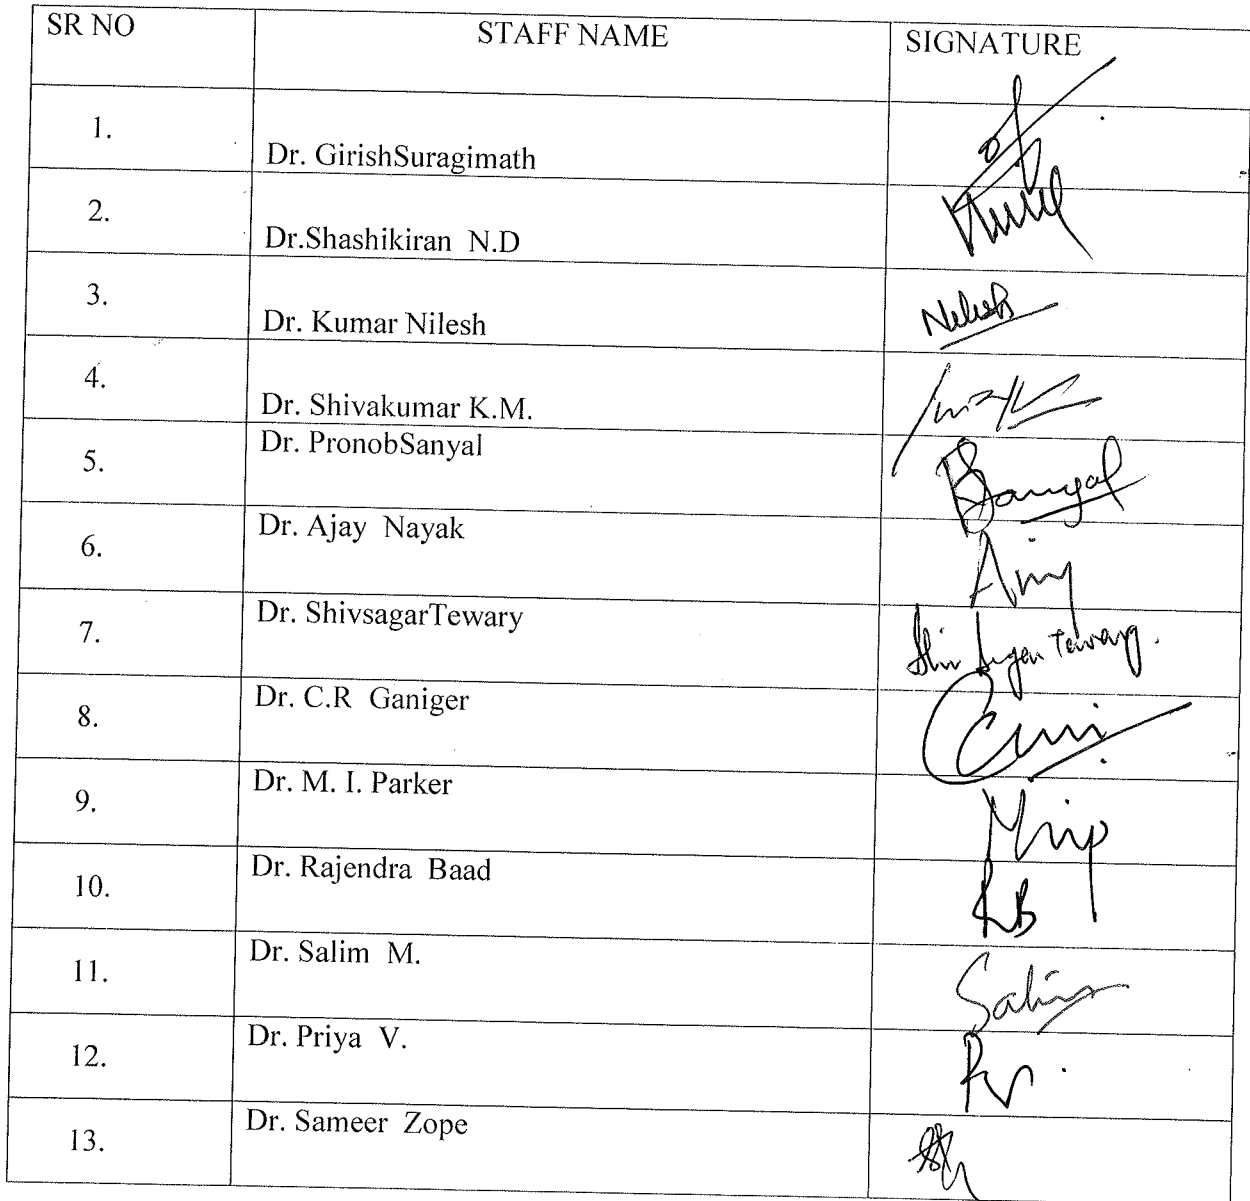 SR NO STAFF NAME SIGNATURE
1. Dr. GirishSuragimath
2. Dr.Shashikiran N.D
3. Dr. Kumar Nilesh Nilesh
4. Dr. Shivakumar K.M.
5. Dr. PronobSanyal
6. Dr. Ajay Nayak
7. Dr. ShivsagarTewary
8. Dr. C.R Ganiger
9. Dr. M. I. Parker
10. Dr. Rajendra Baad RB
11. Dr. Salim M. Salim
12. Dr. Priya V.
13. Dr. Sameer Zope